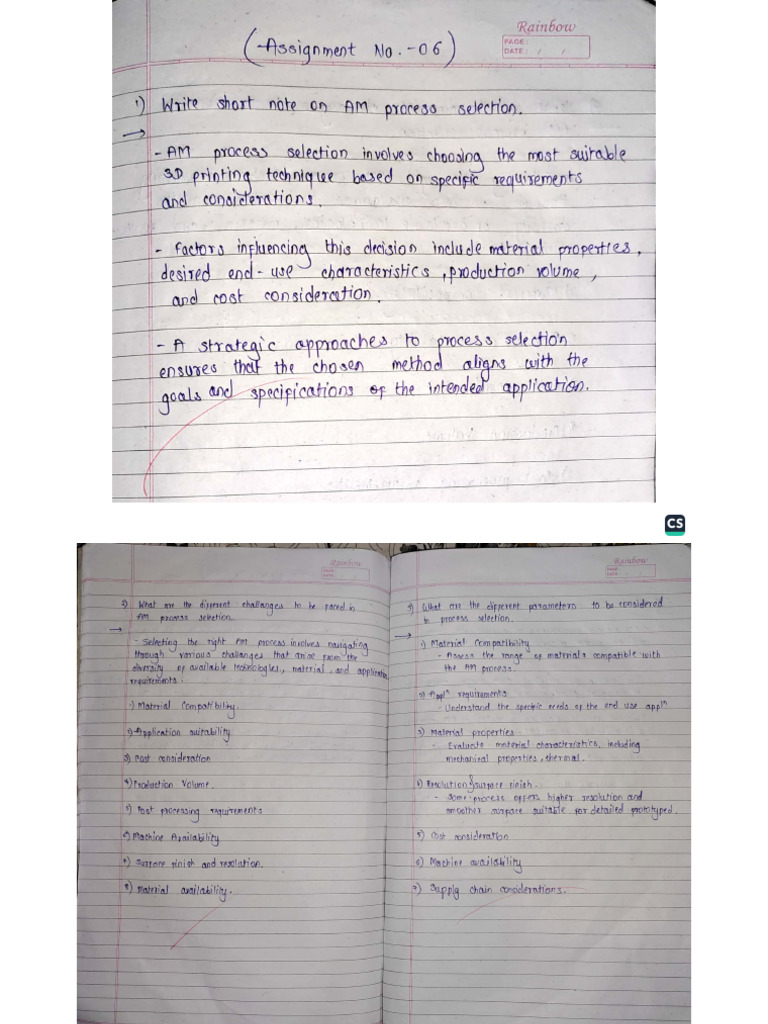 Rainbow
PAGE:
DATE: / /
(Assignment No.-06)
1) Write short note on AM process selection.
→
- AM process selection involves choosing the most suitable
3D printing technique based on specific requirements
and considerations.
- Factors influencing this decision include material properties,
desired end-use characteristics, production volume,
and cost consideration.
- A strategic approaches to process selection
ensures that the chosen method aligns with the
goals and specifications of the intended application.
CS
Rainbow
2) What are the different challenges to be faced in
AM process selection.
→
- Selecting the right AM process involves navigating
through various challenges that arise from the
diversity of available technologies, material, and application
requirements.
1) Material Compatibility.
2) Application suitability
3) Cost consideration
4) Production Volume.
5) Post processing requirements
6) Machine Availability
7) Surface finish and resolation.
8) Material availability.
Rainbow
3) What are the different parameters to be considered
in process selection.
→
1) Material Compatibility
- Assess the range of materials compatible with
the AM process.
2) Applⁿ requirements
- Understand the specific needs of the end use applⁿ
3) Material properties
- Evaluate material characteristics, including
mechanical properties, thermal.
4) Resolution & surface finish.
- Some process offers higher resolution and
smoother surface suitable for detailed prototyped.
5) Cost consideration
6) Machine availability
7) Supply chain considerations.